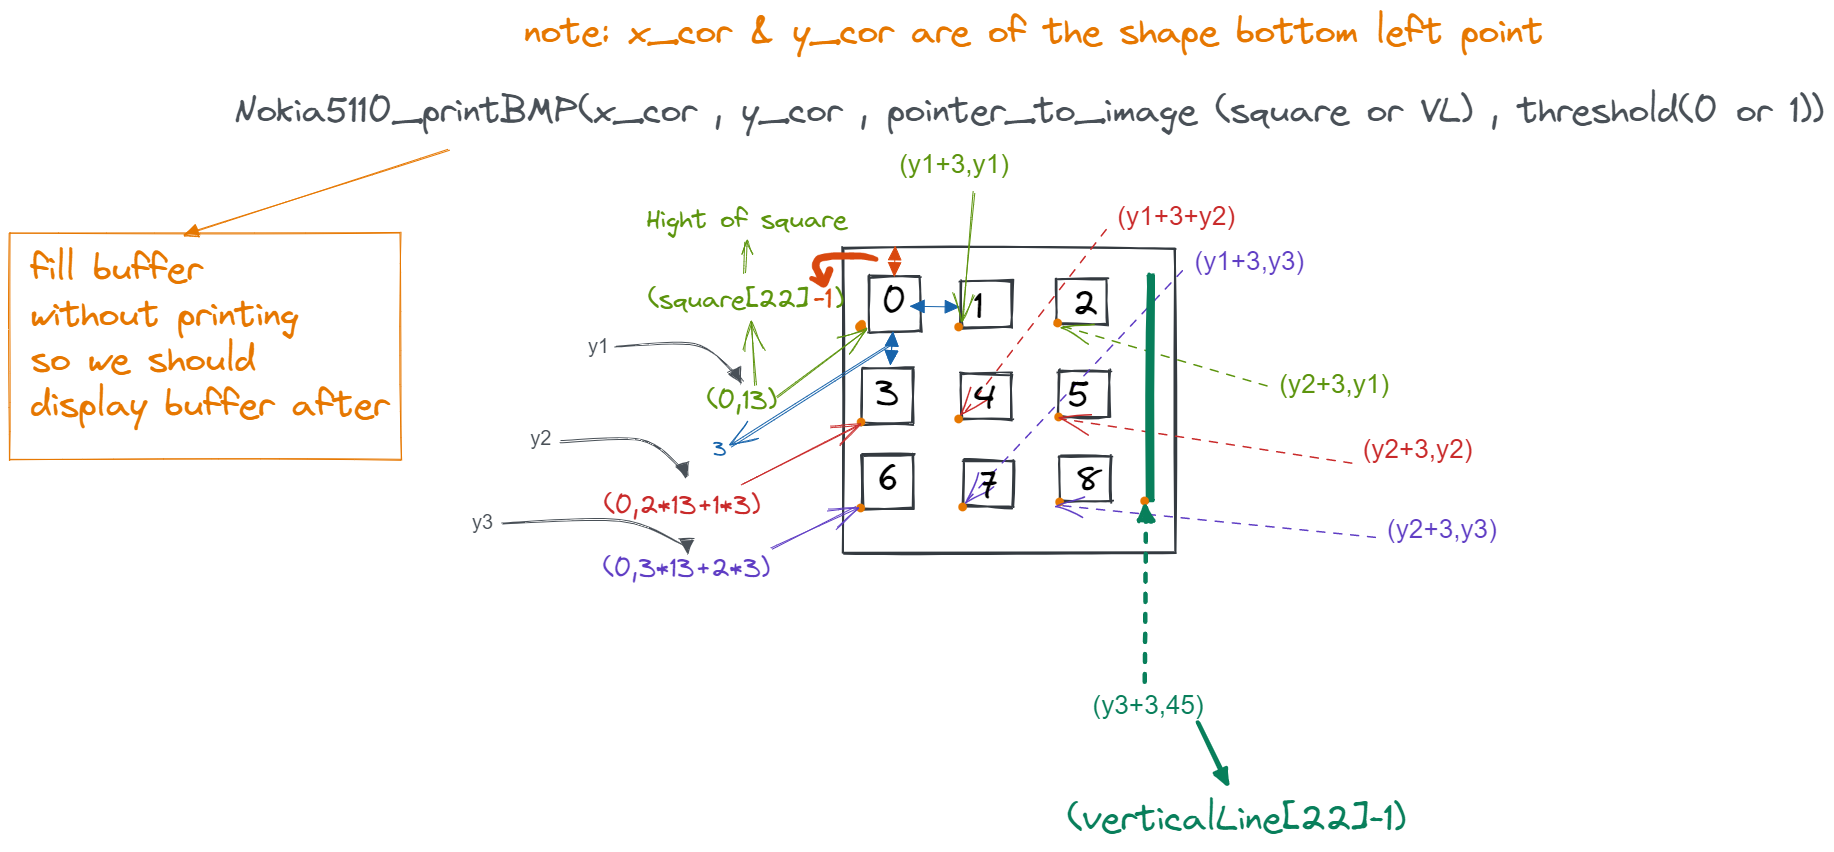 note: x_cor & y_cor are of the shape bottom left point
Nokia5110_printBMP(x_cor , y_cor , pointer_to_image (square or VL) , threshold(0 or 1))
fill buffer
without printing
so we should
display buffer after
(y1+3,y1)
Hight of square
(square[22]-1)
y1
(0,13)
3
y2
(0,2*13+1*3)
y3
(0,3*13+2*3)
0
1
2
3
4
5
6
7
8
(y1+3+y2)
(y1+3,y3)
(y2+3,y1)
(y2+3,y2)
(y2+3,y3)
(y3+3,45)
(verticalLine[22]-1)